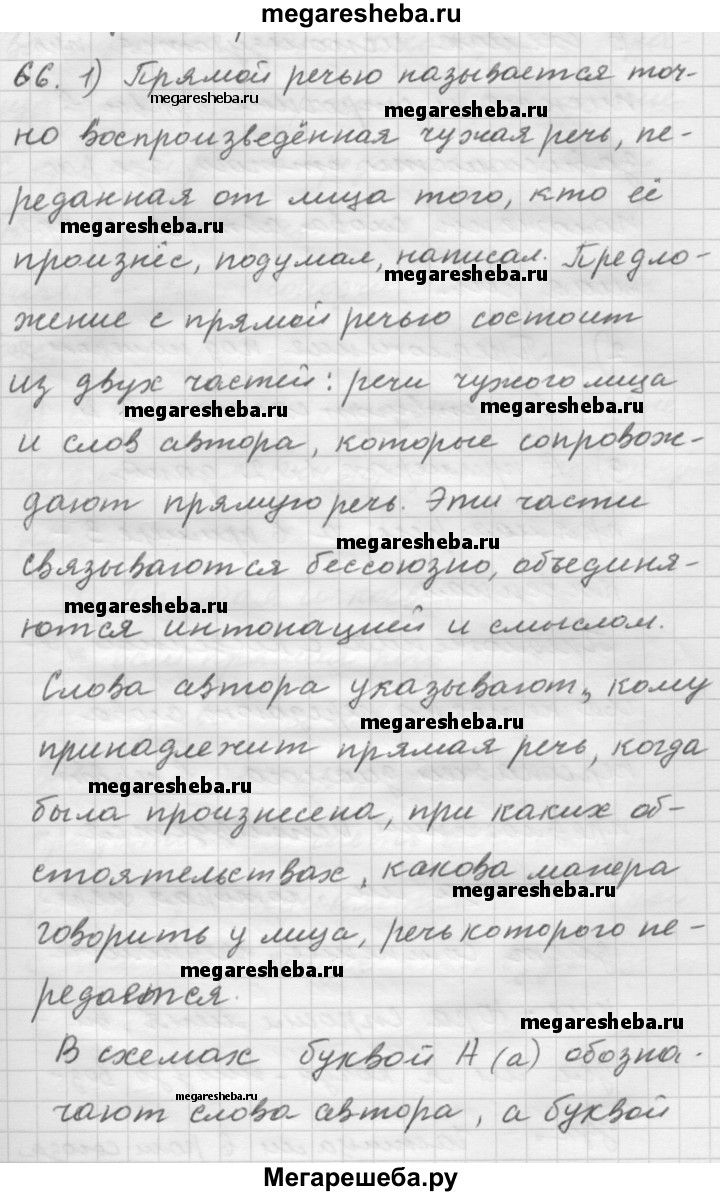 megaresheba.ru
66. 1) Прямой речью называется точ-
megaresheba.ru
но воспроизведённая чужая речь, пе-
megaresheba.ru
реданная от лица того, кто её
megaresheba.ru
произнёс, подумал, написал. Предло-
megaresheba.ru
жение с прямой речью состоит
из двух частей: речи чужого лица
megaresheba.ru megaresheba.ru
и слов автора, которые сопровож-
дают прямую речь. Эти части
megaresheba.ru
связываются бессоюзно, объединя-
megaresheba.ru
ются интонацией и смыслом.
Слова автора указывают, кому
megaresheba.ru
принадлежит прямая речь, когда
megaresheba.ru
была произнесена, при каких об-
стоятельствах, какова манера
megaresheba.ru
говорить у лица, речь которого пе-
megaresheba.ru
редаётся.
megaresheba.ru
В схемах буквой А (а) обозна-
megaresheba.ru
чают слова автора, а буквой
Мегарешеба.ру